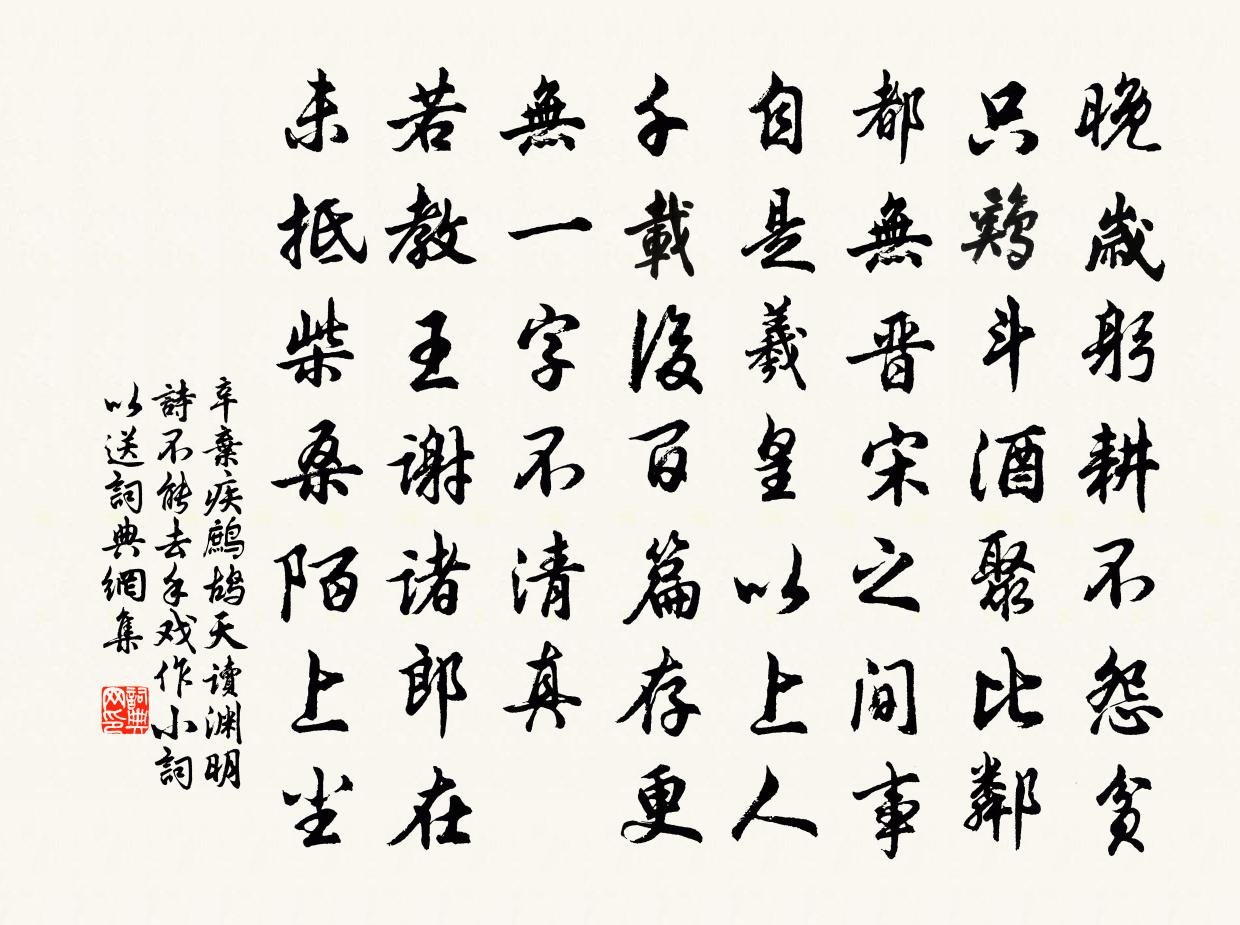 晚歲躬耕不怨貧
只鷄斗酒聚比鄰
都無晋宋之间事
自是羲皇以上人
千載後百篇存更
無一字不清真
若教王謝诸郎在
未抵柴桑陌上尘
辛棄疾鷓鸪天讀渊明
詩不能去手戏作小詞
以送詞典網集
詞典网印